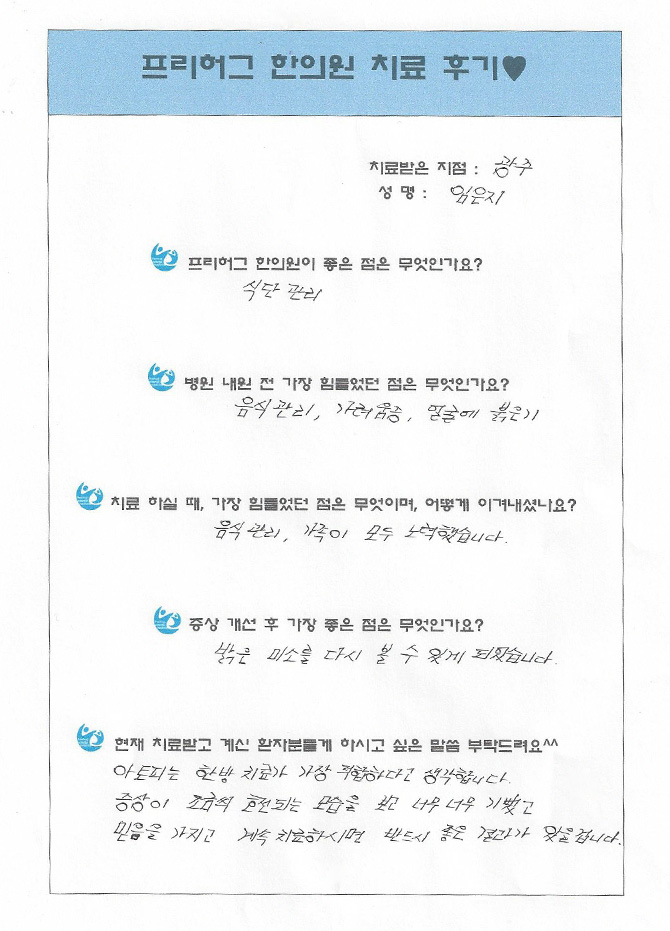 프리허그 한의원 치료 후기♥
치료받은 지점 : 광주
성 명 : 임은지
프리허그 한의원이 좋은 점은 무엇인가요?
식단 관리
병원 내원 전 가장 힘들었던 점은 무엇인가요?
음식관리, 가려움증, 얼굴에 붉은기
치료 하실 때, 가장 힘들었던 점은 무엇이며, 어떻게 이겨내셨나요?
음식관리, 가족이 모두 노력했습니다.
증상 개선 후 가장 좋은 점은 무엇인가요?
밝은 미소를 다시 볼 수 있게 되었습니다.
현재 치료받고 계신 환자분들께 하시고 싶은 말씀 부탁드려요^^
아토피는 한방 치료가 가장 적합하다고 생각합니다.
증상이 조금씩 호전되는 모습을 보고 너무 너무 기뻤고
믿음을 가지고 계속 치료하시면 반드시 좋은 결과가 있을겁니다.